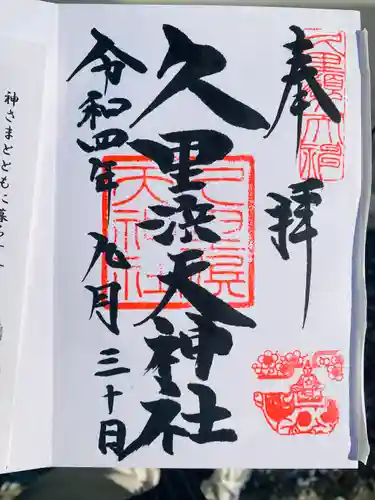 奉拝
久里浜天神社
令和四年九月三十日
神さまとともに暮らし